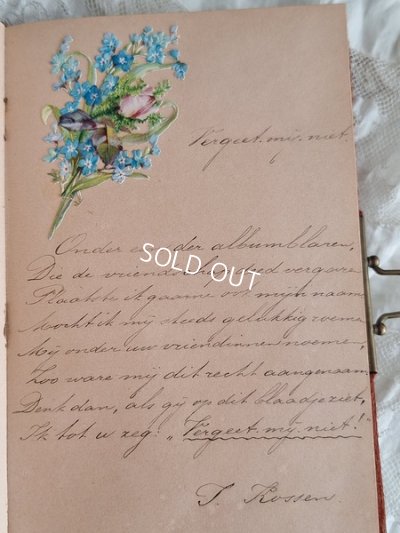 Vergeet-mij-niet.
Onder een der albumblaren,
Die de vriendschap vergaren
Plaatste ik gaarne ook mijn naam
Mocht ik mij steeds gelukkig roemen
Mij onder uw vriendinnen noemen,
Zoo ware mij dit recht aangenaam
Denk dan, als gij op dit blaadje ziet,
Ik tot u zeg: „Vergeet-mij-niet!"
T. Kossen.
SOLD OUT